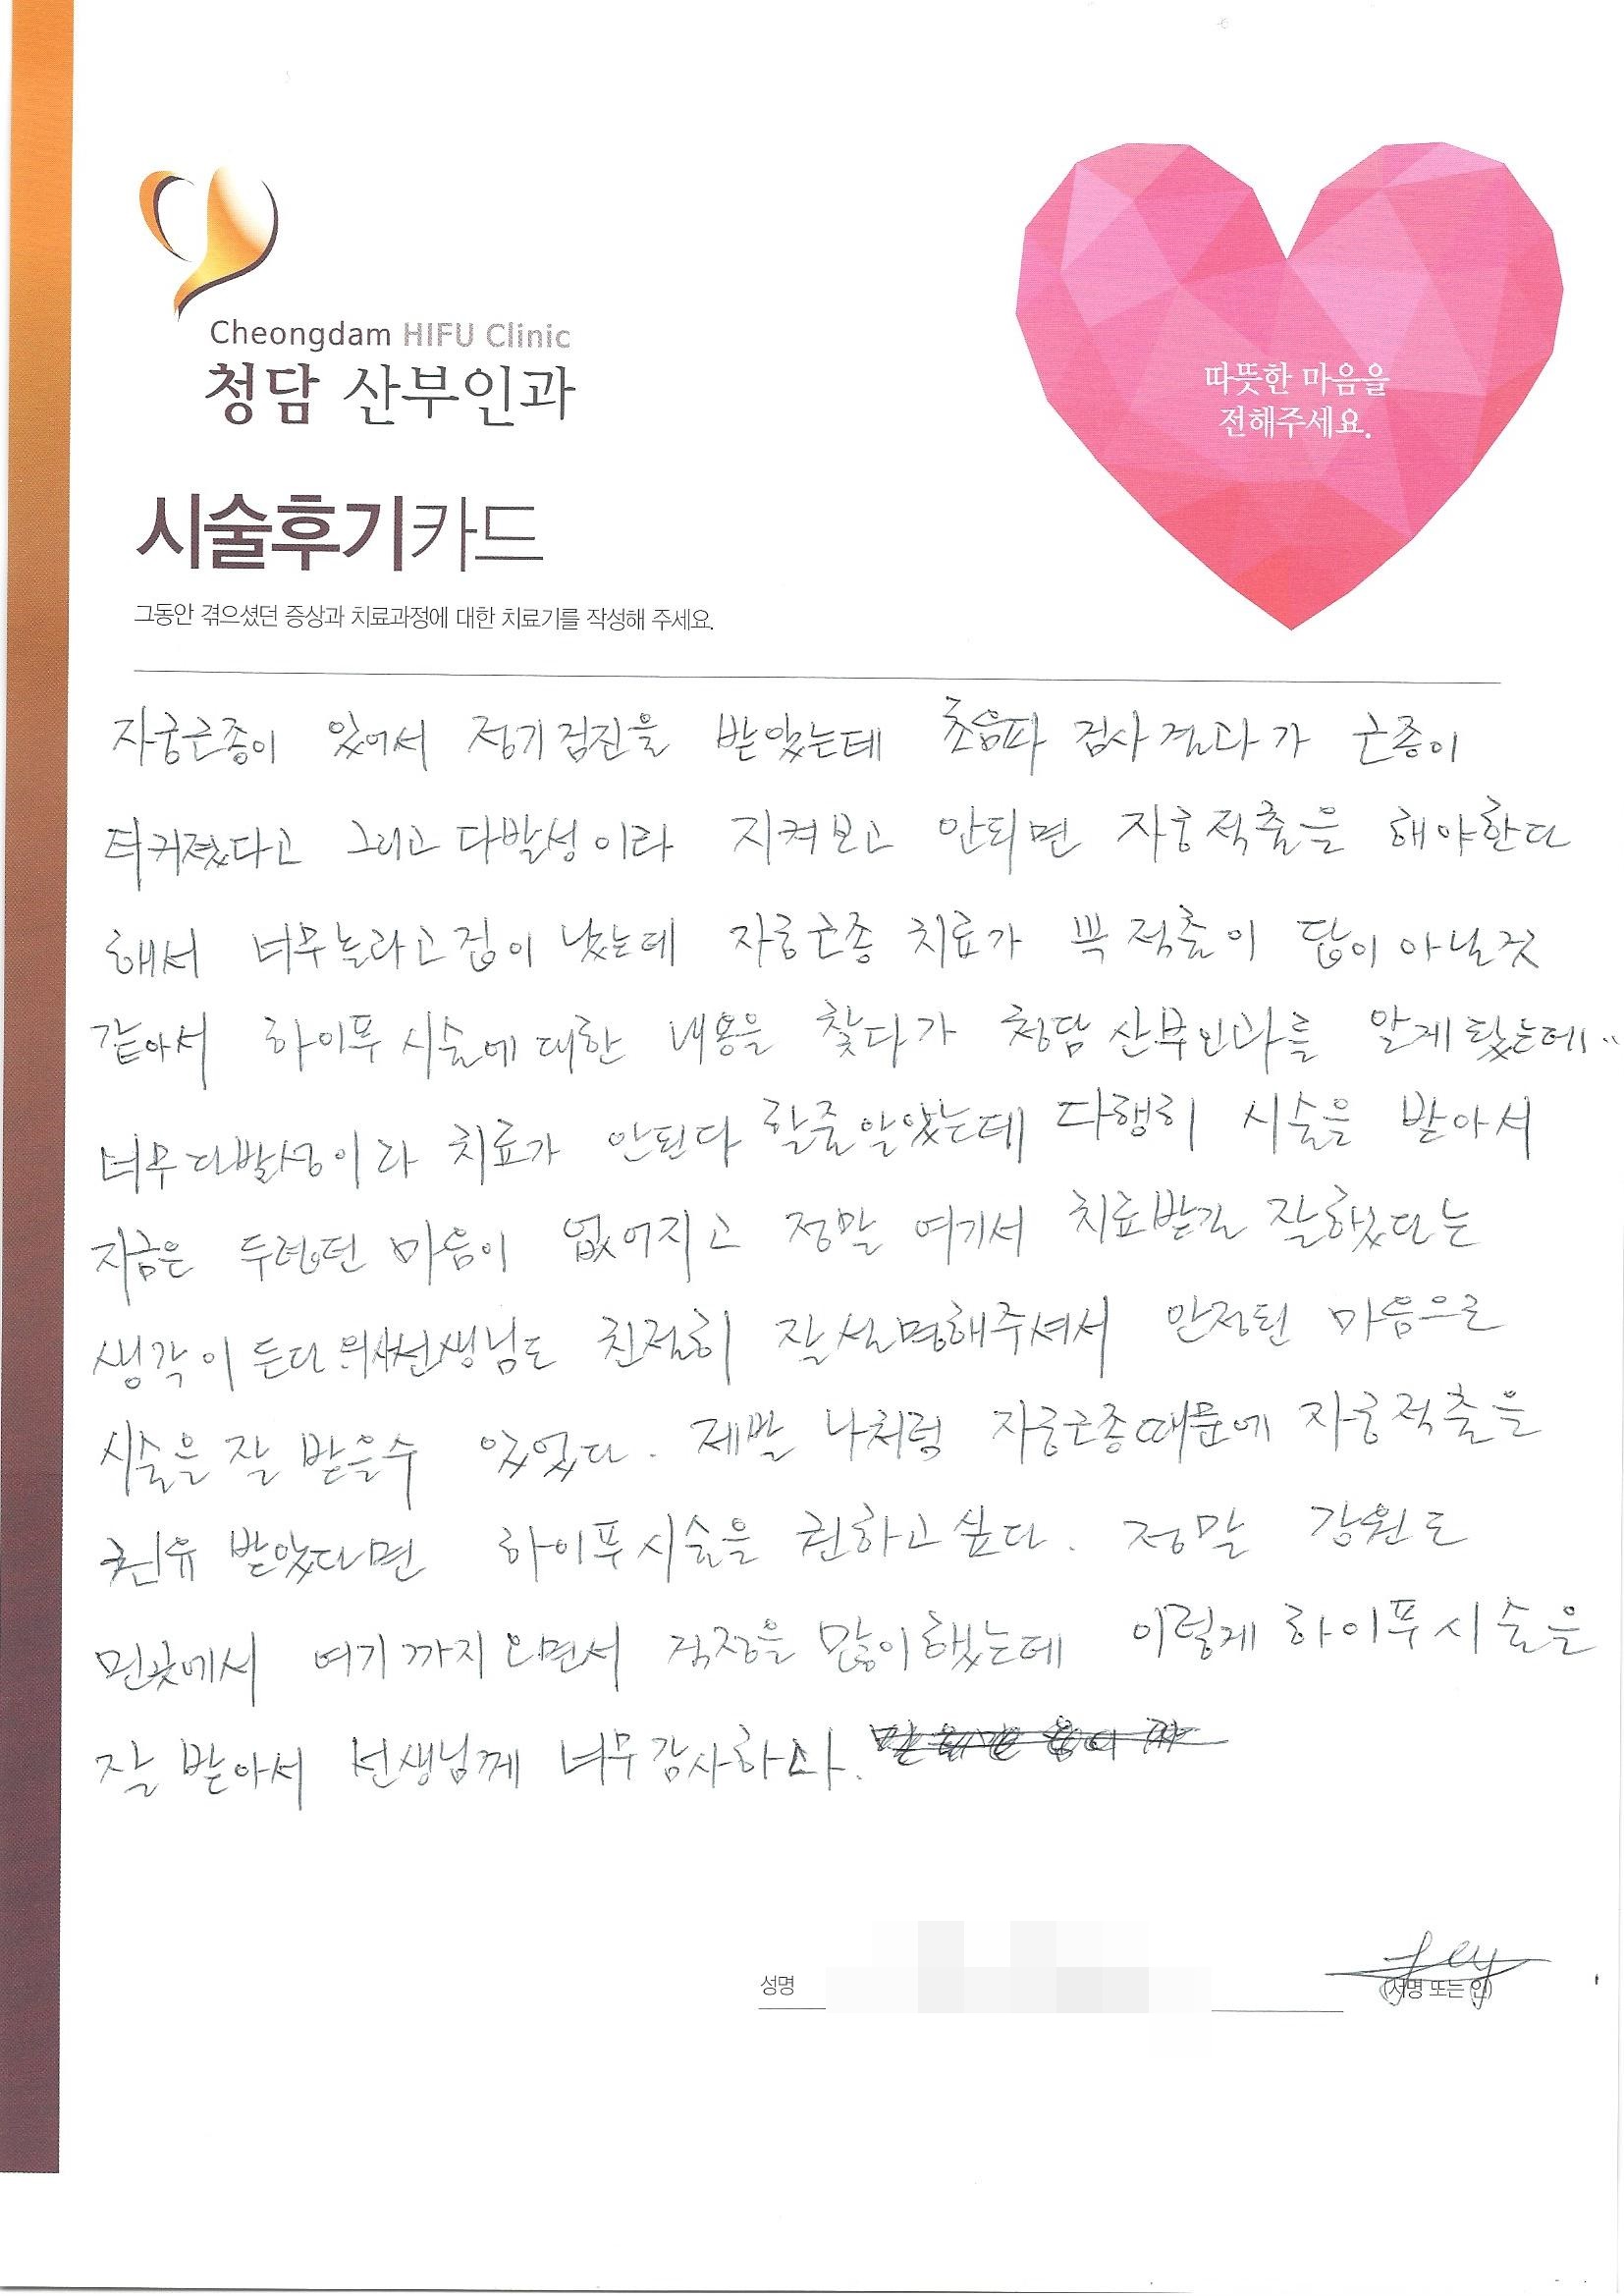 Cheongdam HIFU Clinic
청담 산부인과
따뜻한 마음을
전해주세요.
시술후기카드
그동안 겪으셨던 증상과 치료과정에 대한 치료기를 작성해 주세요.
자궁근종이 있어서 정기검진을 받았는데 초음파 검사결과가 근종이
더커졌다고 그리고 다발성이라 지켜보고 안되면 자궁적출을 해야한다
해서 너무놀라고겁이 났는데 자궁근종 치료가 꼭 적출이 답이 아닐것
같아서 하이푸 시술에 대한 내용을 찾다가 청담 산부인과를 알게됐는데..
너무다발성이라 치료가 안된다 할줄알았는데 다행히 시술을 받아서
지금은 두렵던 마음이 없어지고 정말 여기서 치료받길 잘했다는
생각이 든다 의사선생님도 친절히 잘설명해주셔서 안정된 마음으로
시술을 잘 받을수 있었다. 제발 나처럼 자궁근종때문에 자궁적출을
권유 받았다면 하이푸시술을 권하고싶다. 정말 강원도
먼곳에서 여기까지 오면서 걱정을 많이했는데 이렇게 하이푸시술을
잘 받아서 선생님께 너무감사하다.
성명
(서명 또는 인)